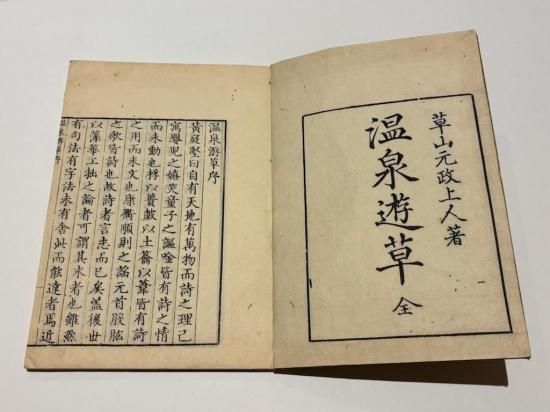 草山元政上人著
温泉遊草 全
温泉游草序
黄庭堅曰自有天地有萬物而詩之理已
寓嬰児之嬉笑童子之謳唫皆有詩之情
而未動也桴以蕢鼓以土籥以葦皆有詩
之用而未文也康衢順則之謡元首股肱
之歌皆詩也故詩者言志而已矣盖後世
以藻華工拙之論者可謂其末者也雖然
有句法有字法未有舍此而能達者焉近